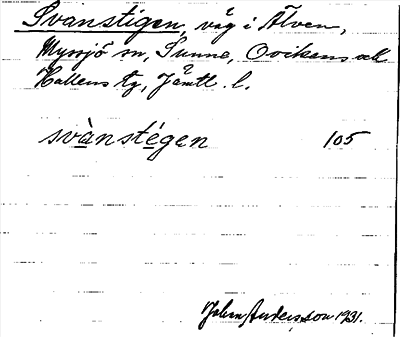 Svanstigen, våg i Älven,
Myssjö sn, Sunne, Ovikens och
Hallens tg, Jämtl. l.
svànstégen 105
John Andersson 1931.